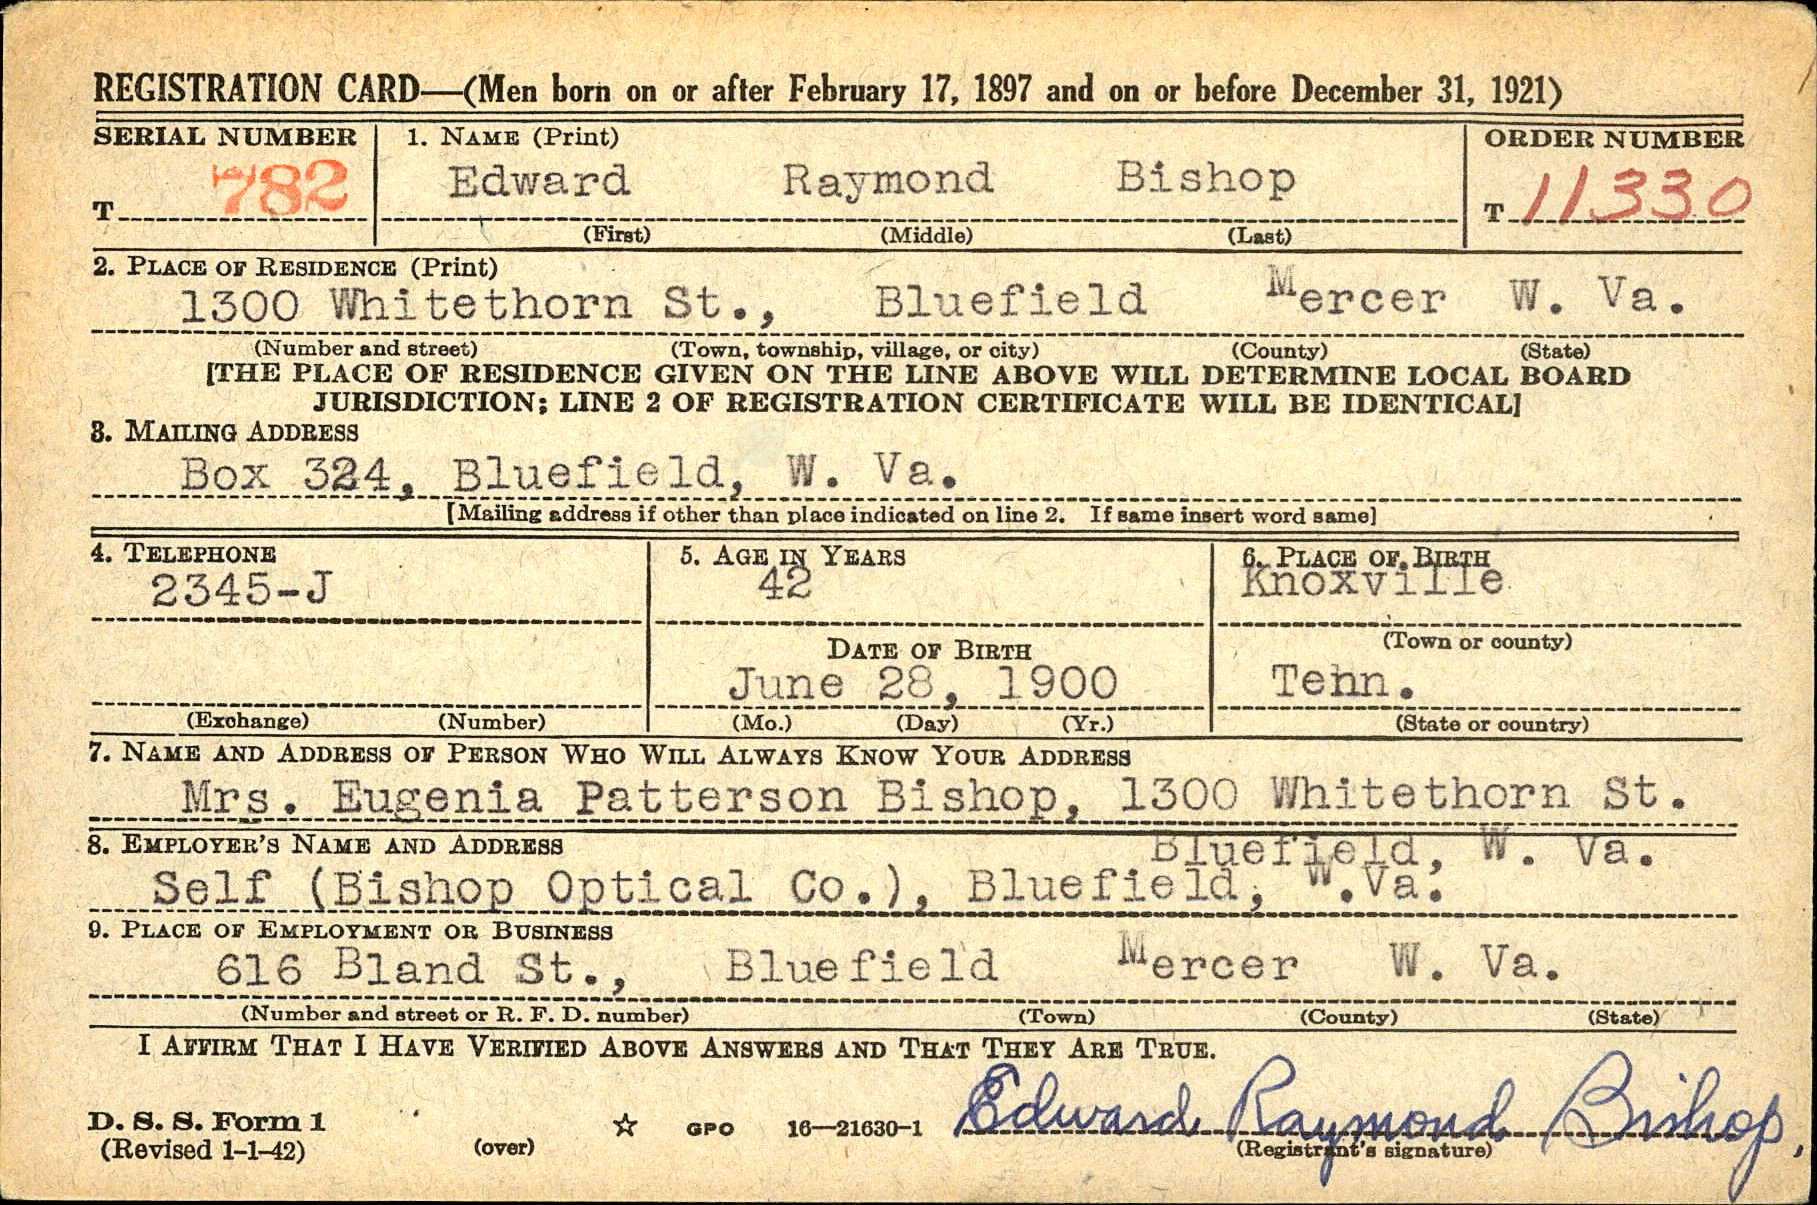 REGISTRATION CARD—(Men born on or after February 17, 1897 and on or before December 31, 1921)
SERIAL NUMBER 1. NAME (Print) ORDER NUMBER
T 782 Edward Raymond Bishop T 11330
(First) (Middle) (Last)
2. PLACE OF RESIDENCE (Print)
1300 Whitethorn St., Bluefield Mercer W. Va.
(Number and street) (Town, township, village, or city) (County) (State)
[THE PLACE OF RESIDENCE GIVEN ON THE LINE ABOVE WILL DETERMINE LOCAL BOARD
JURISDICTION; LINE 2 OF REGISTRATION CERTIFICATE WILL BE IDENTICAL]
3. MAILING ADDRESS
Box 324, Bluefield, W. Va.
[Mailing address if other than place indicated on line 2. If same insert word same]
4. TELEPHONE 5. AGE IN YEARS 6. PLACE OF BIRTH
2345-J 42 Knoxville
(Town or county)
DATE OF BIRTH
June 28, 1900 Tenn.
(Exchange) (Number) (Mo.) (Day) (Yr.) (State or country)
7. NAME AND ADDRESS OF PERSON WHO WILL ALWAYS KNOW YOUR ADDRESS
Mrs. Eugenia Patterson Bishop, 1300 Whitethorn St.
Bluefield, W. Va.
8. EMPLOYER'S NAME AND ADDRESS
Self (Bishop Optical Co.), Bluefield, W.Va.
9. PLACE OF EMPLOYMENT OR BUSINESS
616 Bland St., Bluefield Mercer W. Va.
(Number and street or R. F. D. number) (Town) (County) (State)
I AFFIRM THAT I HAVE VERIFIED ABOVE ANSWERS AND THAT THEY ARE TRUE.
D. S. S. Form 1 ☆ GPO 16—21630-1 Edward Raymond Bishop,
(Revised 1-1-42) (over) (Registrant's signature)